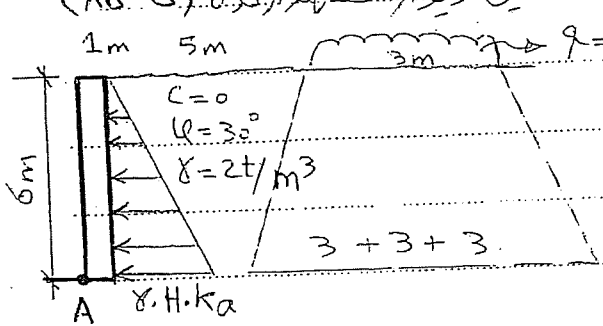 1m 5m
q=
3m
C=0
φ=30°
γ=2t/m³
6m
3+3+3
A
γ.H.ka